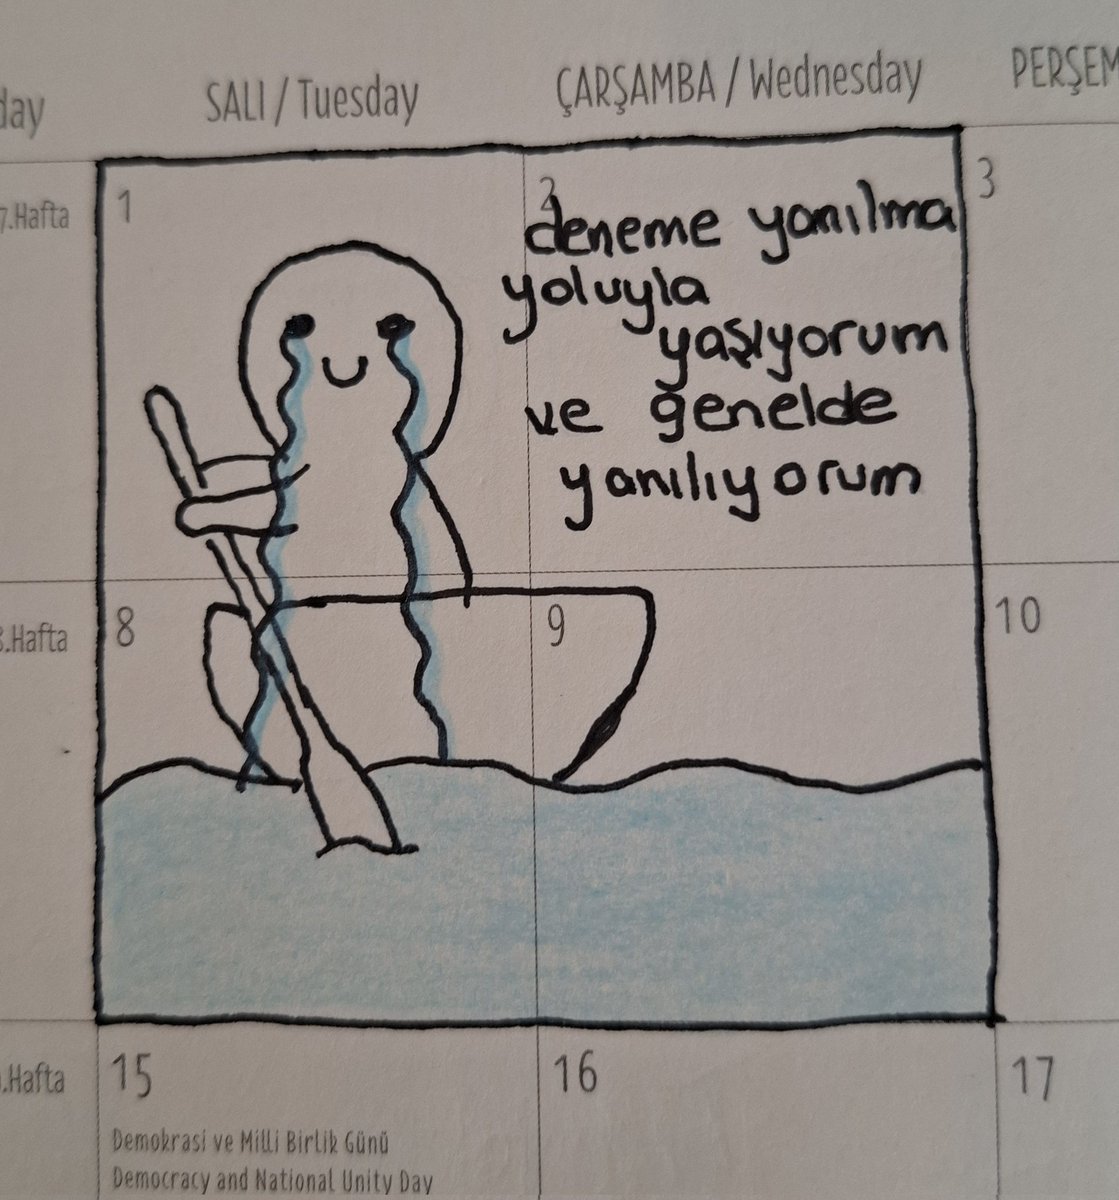 day
SALI / Tuesday
ÇARŞAMBA / Wednesday
PERŞEM
7.Hafta
1
2
3
deneme yanılma
yoluyla
yaşıyorum
ve genelde
yanılıyorum
8.Hafta
8
9
10
.Hafta
15
16
17
Demokrasi ve Milli Birlik Günü
Democracy and National Unity Day